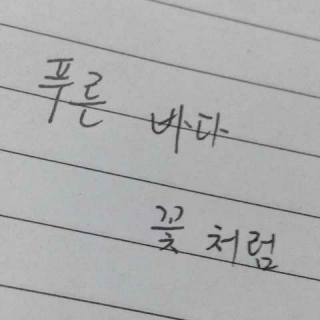 푸른 바다
꽃 처럼